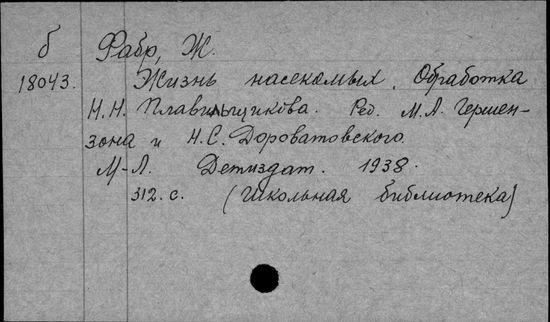 б Фабр, Ж.
18043. Жизнь насекомых. Обработка
Н.Н. Плавильщикова. Ред. М.А. Гершен-
зона и Н.С. Дороватовского.
М-Л. Детиздат. 1938.
312. с. (Школьная библиотека)